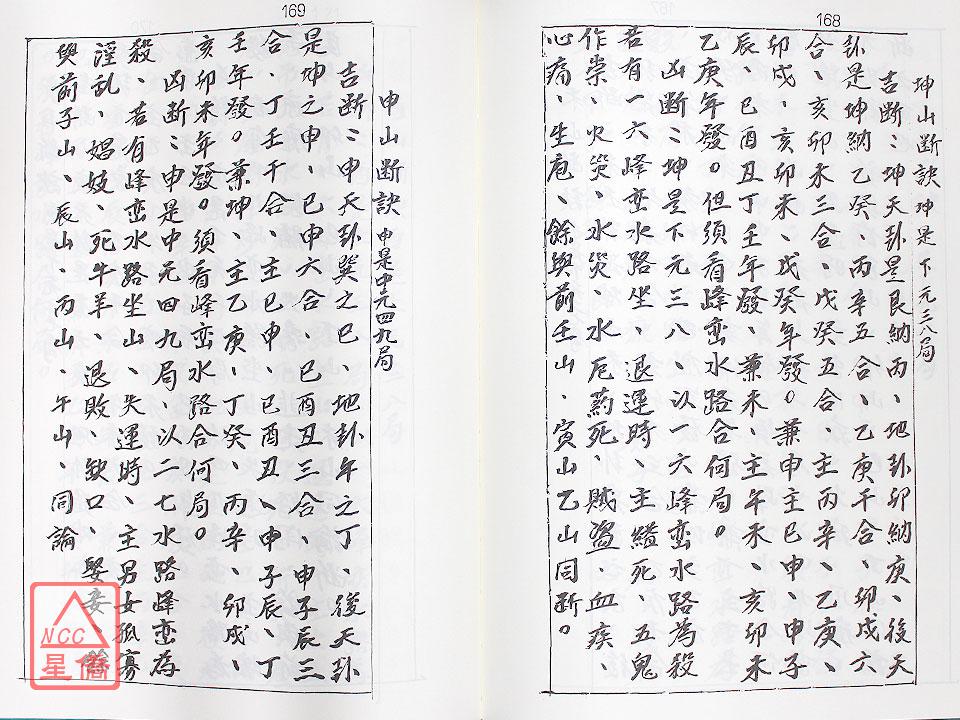 168
坤山断訣坤是下元三八局
吉断：坤天卦是艮納丙、地卦卯納庚、後天
卦是坤納乙癸、丙辛五合、乙庚干合、卯戌六
合、亥卯未三合、戊癸五合、主丙辛、乙庚、
卯戌、亥卯未、戊癸年發。兼申主巳申、申子
辰、巳酉丑丁壬年發、兼未、主午未、亥卯未
乙庚年發。但須看峰蛮水路合何局。
凶断：坤是下元三八、以一六峰蛮水路為殺
若有一六峰蛮水路坐、退運時、主縊死、五鬼
作祟、火災、水災、水厄药死、賊盗、血疾、
心痛、生疱、餘與前壬山、寅山乙山同断。
169
申山断訣申是中元四九局
吉断：申天卦巽之巳、地卦午之丁、後天卦
是坤之申、巳申六合、巳酉丑三合、申子辰三
合、丁壬干合、主巳申、巳酉丑、申子辰、丁
壬年發。兼坤、主乙庚、丁癸、丙辛、卯戌、
亥卯未年發。須看峰蛮水路合何局。
凶断：申是中元四九局、以二七水路峰蛮為
殺、若有峰蛮水路坐山、失運時、主男女孤寡
淫乱、娼妓、死牛羊、退敗、缺口、娶妾、餘
與前子山、辰山、丙山、午山、同論
NCC
星僑